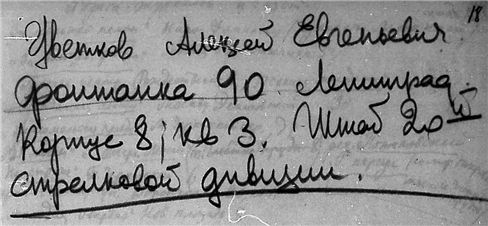 18
Цветков Алексей Евгеньевич.
Фонтанка 90. Ленинград.
Корпус 8; кв 3. Штаб 20й
стрелковой дивизии.